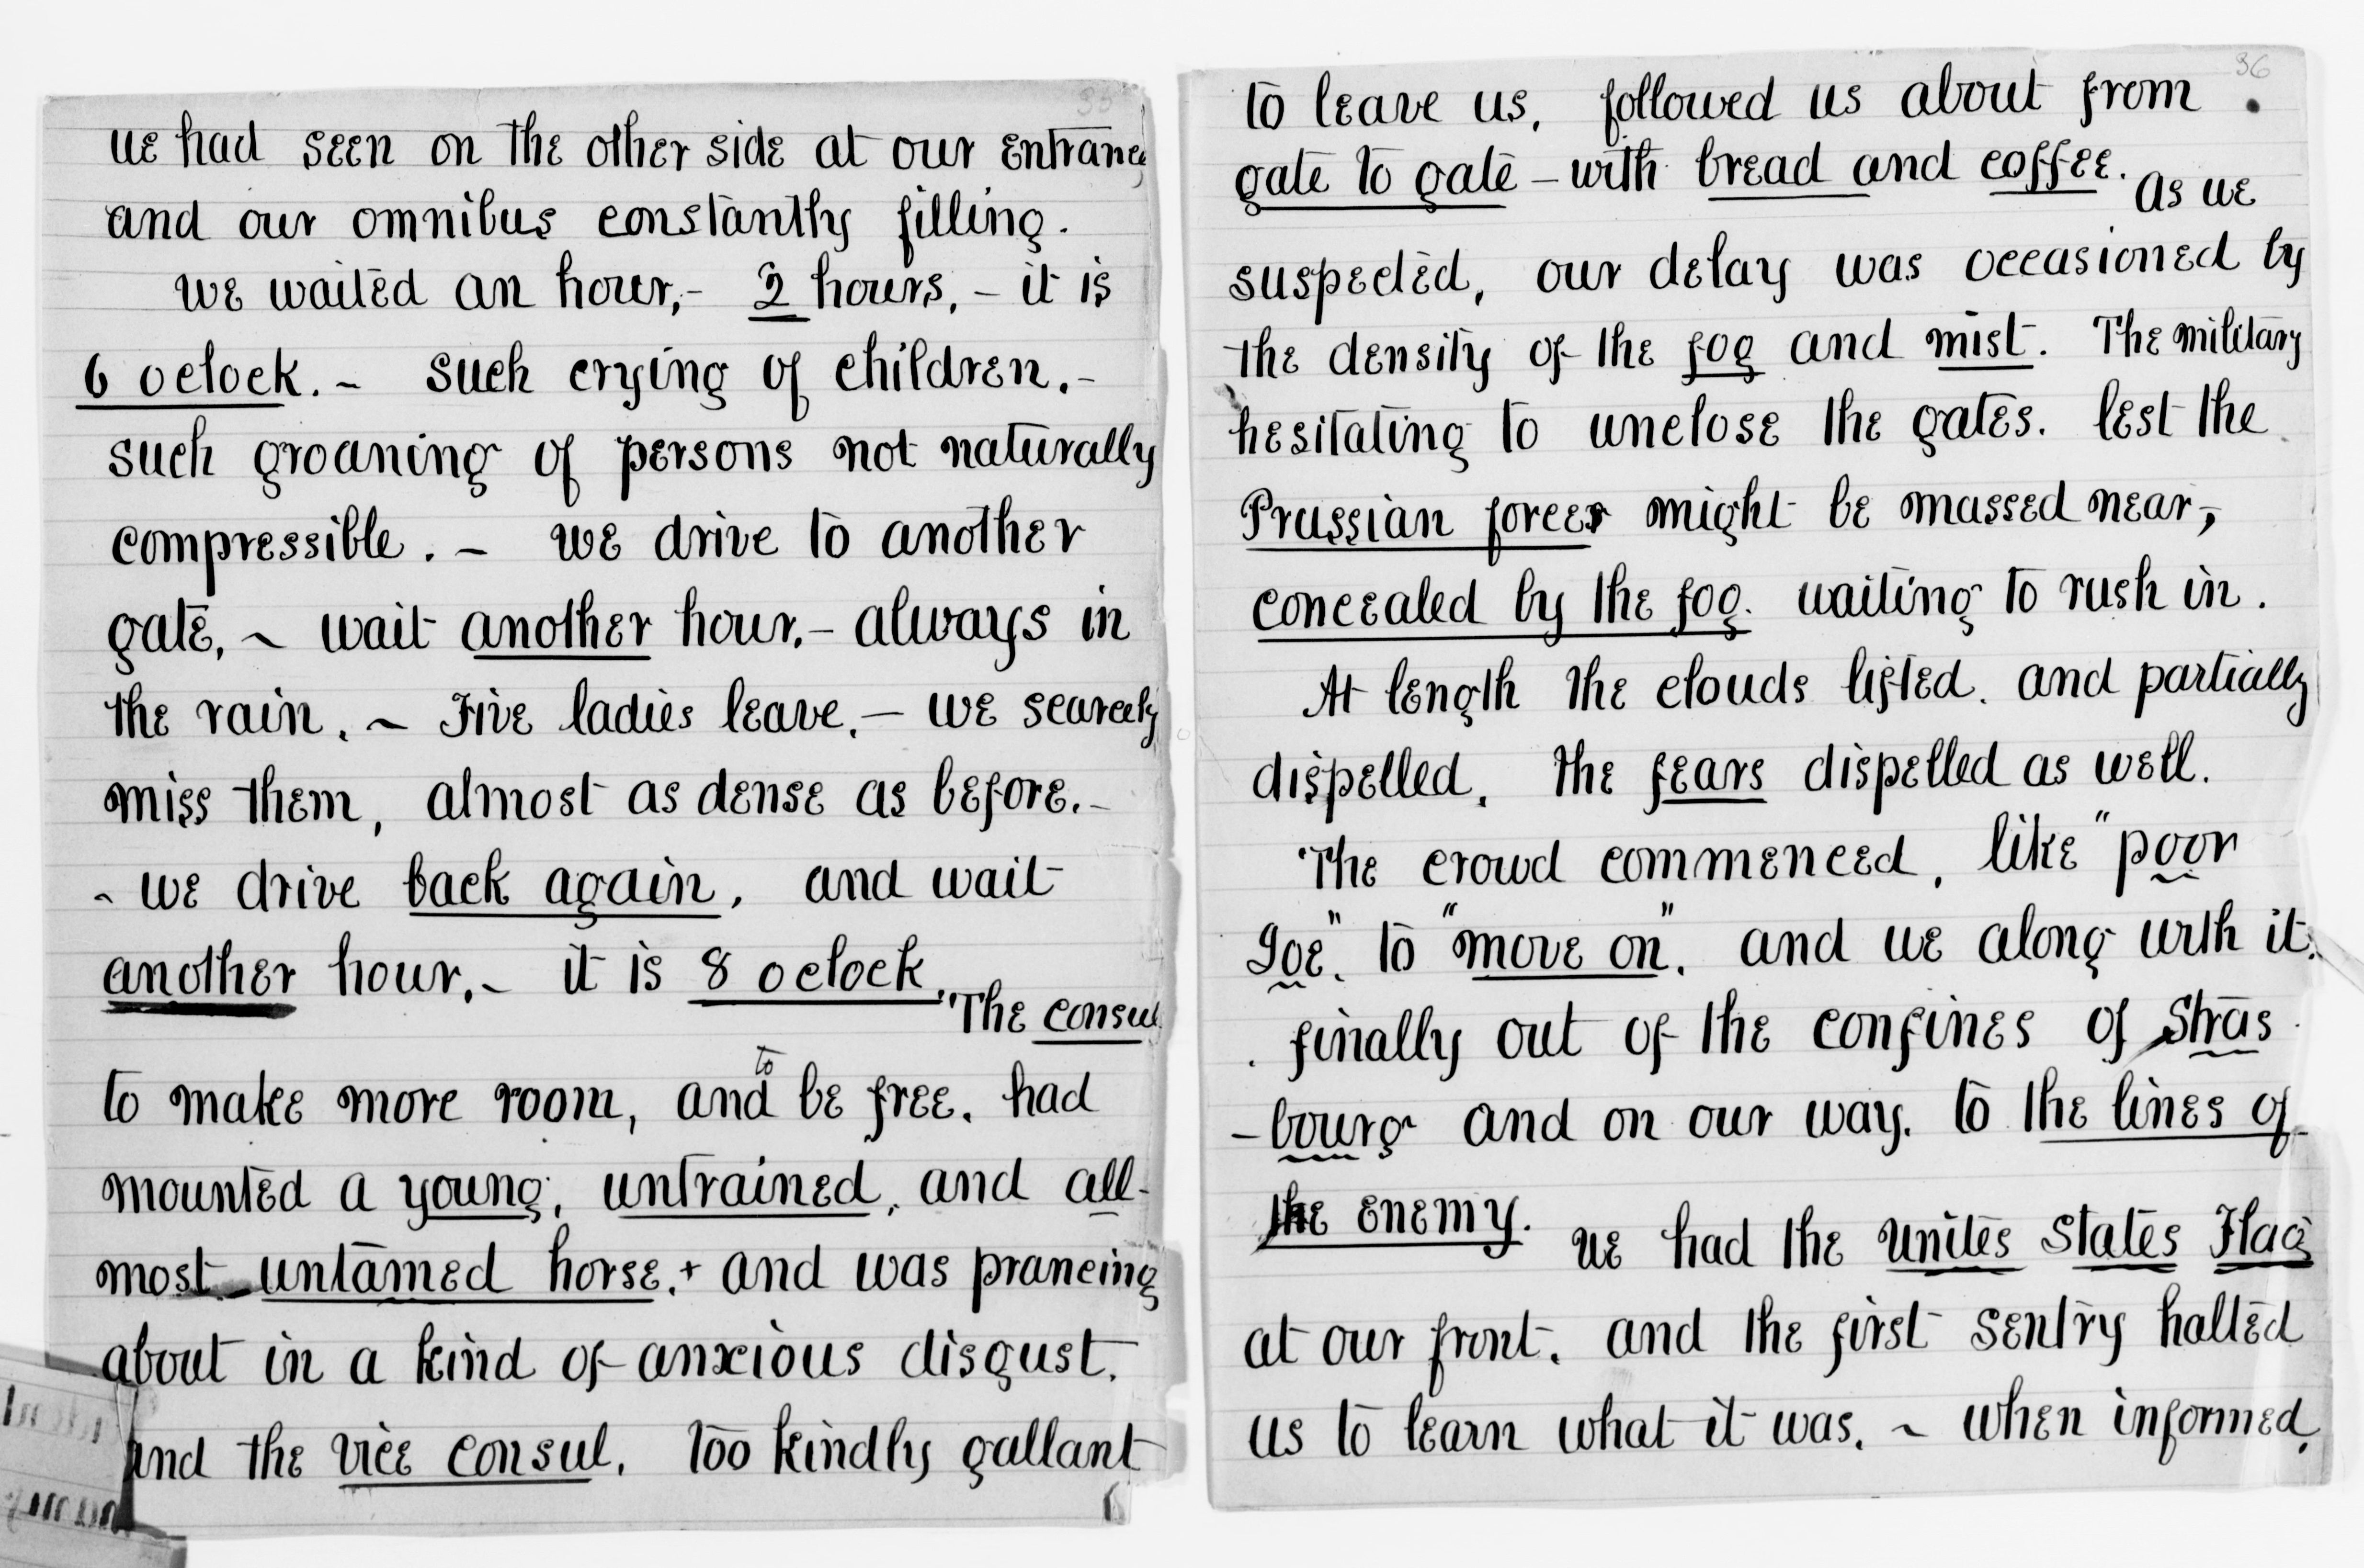 35
we had seen on the other side at our entrance
and our omnibus constantly filling.
we waited an hour,- 2 hours, - it is
6 oclock. - such crying of children.-
such groaning of persons not naturally
compressible. - we drive to another
gate, ~ wait another hour.- always in
the rain. ~ Five ladies leave. - we scarcely
miss them, almost as dense as before.-
- we drive back again, and wait
another hour.- it is 8 oclock.
The consul
to make more room, and to be free. had
mounted a young, untrained, and all-
most untamed horse. + and was prancing
about in a kind of anxious disgust.
and the vice consul, too kindly gallant
36
to leave us, followed us about from
gate to gate - with bread and coffee. As we
suspected, our delay was occasioned by
the density of the fog and mist. The military
hesitating to unclose the gates. lest the
Prussian forces might be massed near,
concealed by the fog. waiting to rush in.
At length the clouds lifted. and partially
dispelled, the fears dispelled as well.
The crowd commenced, like "poor
Joe". to "move on". and we along with it.
finally out of the confines of Stras
-bourg and on our way. to the lines of
the enemy. we had the Unites States Flag
at our front. and the first sentry halted
us to learn what it was. ~ when informed,